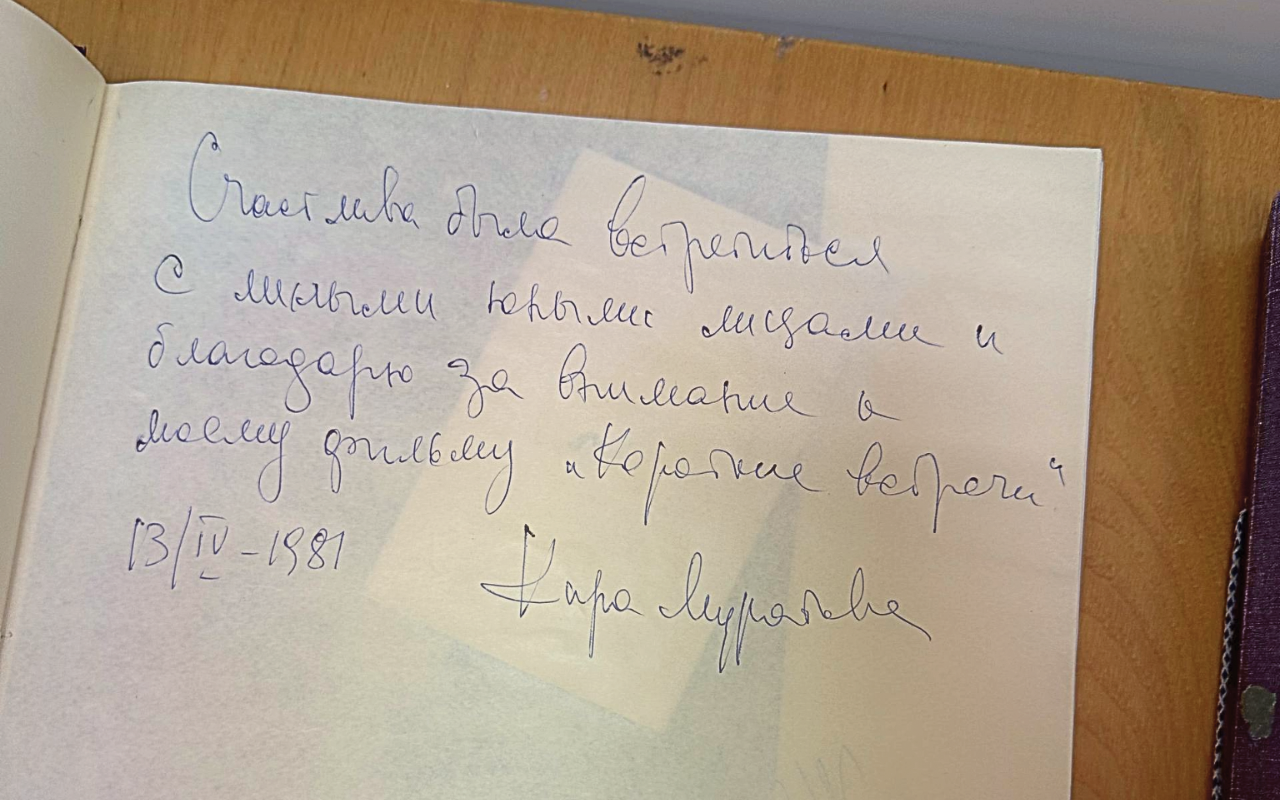 Счастлива была встретиться
с милыми юными лицами и
благодарю за внимание к
моему фильму „Короткие встречи“
13/IV-1981
Кира Муратова